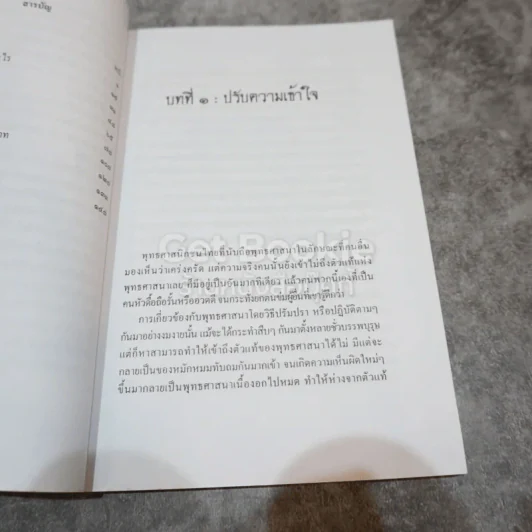 สารบัญ
บทที่ ๑ : ปรับความเข้าใจ
พุทธศาสนิกชนไทยที่นับถือพุทธศาสนาในลักษณะที่คนอื่น
มองเห็นว่าเคร่งครัด แต่ความจริงคนนั้นยังเข้าไม่ถึงตัวแท้แห่ง
พุทธศาสนาเลย ก็มีอยู่เป็นอันมากทีเดียว แล้วคนพวกนี้เองที่เป็น
คนหัวดื้อถือรั้นหรืออวดดี จนกระทั่งยกตนข่มผู้อื่น
การเกี่ยวข้องกับพุทธศาสนาโดยวิธีปรัมปรา หรือปฏิบัติตามๆ
กันมาอย่างงมงายนั้น แม้จะได้กระทำสืบๆ กันมาตั้งหลายชั่วบรรพบุรุษ
แต่ก็หาสามารถทำให้เข้าถึงตัวแท้ของพุทธศาสนาได้ไม่ มีแต่จะ
กลายเป็นของหมักหมมทับถมกันมากเข้า จนเกิดความเห็นผิดใหม่ๆ
ขึ้นมากลายเป็นพุทธศาสนาเนื้องอกไปหมด ทำให้ห่างจากตัวแท้